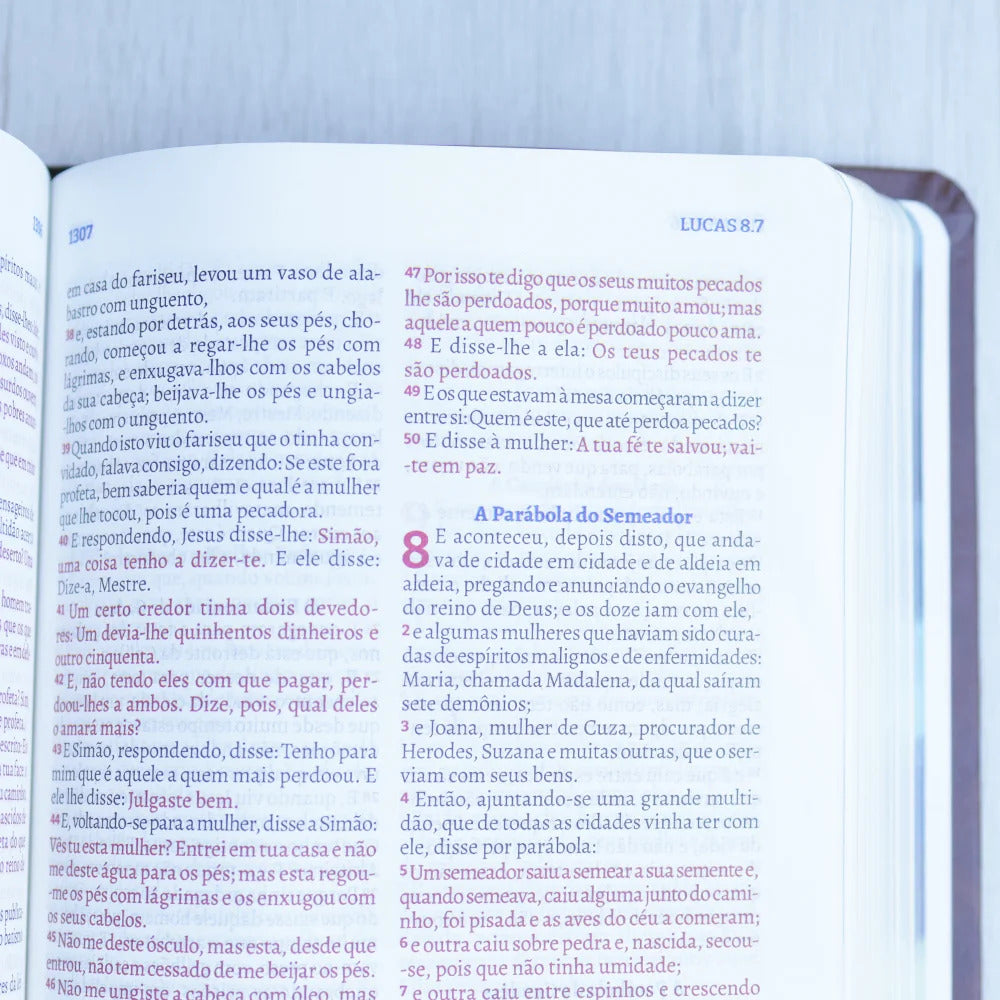 1307
LUCAS 8.7
em casa do fariseu, levou um vaso de ala-
bastro com unguento,
38 e, estando por detrás, aos seus pés, cho-
rando, começou a regar-lhe os pés com
lágrimas, e enxugava-lhos com os cabelos
da sua cabeça; beijava-lhe os pés e ungia-
-lhos com o unguento.
39 Quando isto viu o fariseu que o tinha con-
vidado, falava consigo, dizendo: Se este fora
profeta, bem saberia quem e qual é a mulher
que lhe tocou, pois é uma pecadora.
40 E respondendo, Jesus disse-lhe: Simão,
uma coisa tenho a dizer-te. E ele disse:
Dize-a, Mestre.
41 Um certo credor tinha dois devedo-
res: Um devia-lhe quinhentos dinheiros e
outro cinquenta.
42 E, não tendo eles com que pagar, per-
doou-lhes a ambos. Dize, pois, qual deles
o amará mais?
43 E Simão, respondendo, disse: Tenho para
mim que é aquele a quem mais perdoou. E
ele lhe disse: Julgaste bem.
44 E, voltando-se para a mulher, disse a Simão:
Vês tu esta mulher? Entrei em tua casa e não
me deste água para os pés; mas esta regou-
-me os pés com lágrimas e os enxugou com
os seus cabelos.
45 Não me deste ósculo, mas esta, desde que
entrou, não tem cessado de me beijar os pés.
46 Não me ungiste a cabeça com óleo, mas
47 Por isso te digo que os seus muitos pecados
lhe são perdoados, porque muito amou; mas
aquele a quem pouco é perdoado pouco ama.
48 E disse-lhe a ela: Os teus pecados te
são perdoados.
49 E os que estavam à mesa começaram a dizer
entre si: Quem é este, que até perdoa pecados?
50 E disse à mulher: A tua fé te salvou; vai-
-te em paz.
A Parábola do Semeador
8 E aconteceu, depois disto, que anda-
va de cidade em cidade e de aldeia em
aldeia, pregando e anunciando o evangelho
do reino de Deus; e os doze iam com ele,
2 e algumas mulheres que haviam sido cura-
das de espíritos malignos e de enfermidades:
Maria, chamada Madalena, da qual saíram
sete demônios;
3 e Joana, mulher de Cuza, procurador de
Herodes, Suzana e muitas outras, que o ser-
viam com seus bens.
4 Então, ajuntando-se uma grande multi-
dão, que de todas as cidades vinha ter com
ele, disse por parábola:
5 Um semeador saiu a semear a sua semente e,
quando semeava, caiu alguma junto do cami-
nho, foi pisada e as aves do céu a comeram;
6 e outra caiu sobre pedra e, nascida, secou-
-se, pois que não tinha umidade;
7 e outra caiu entre espinhos e crescendo